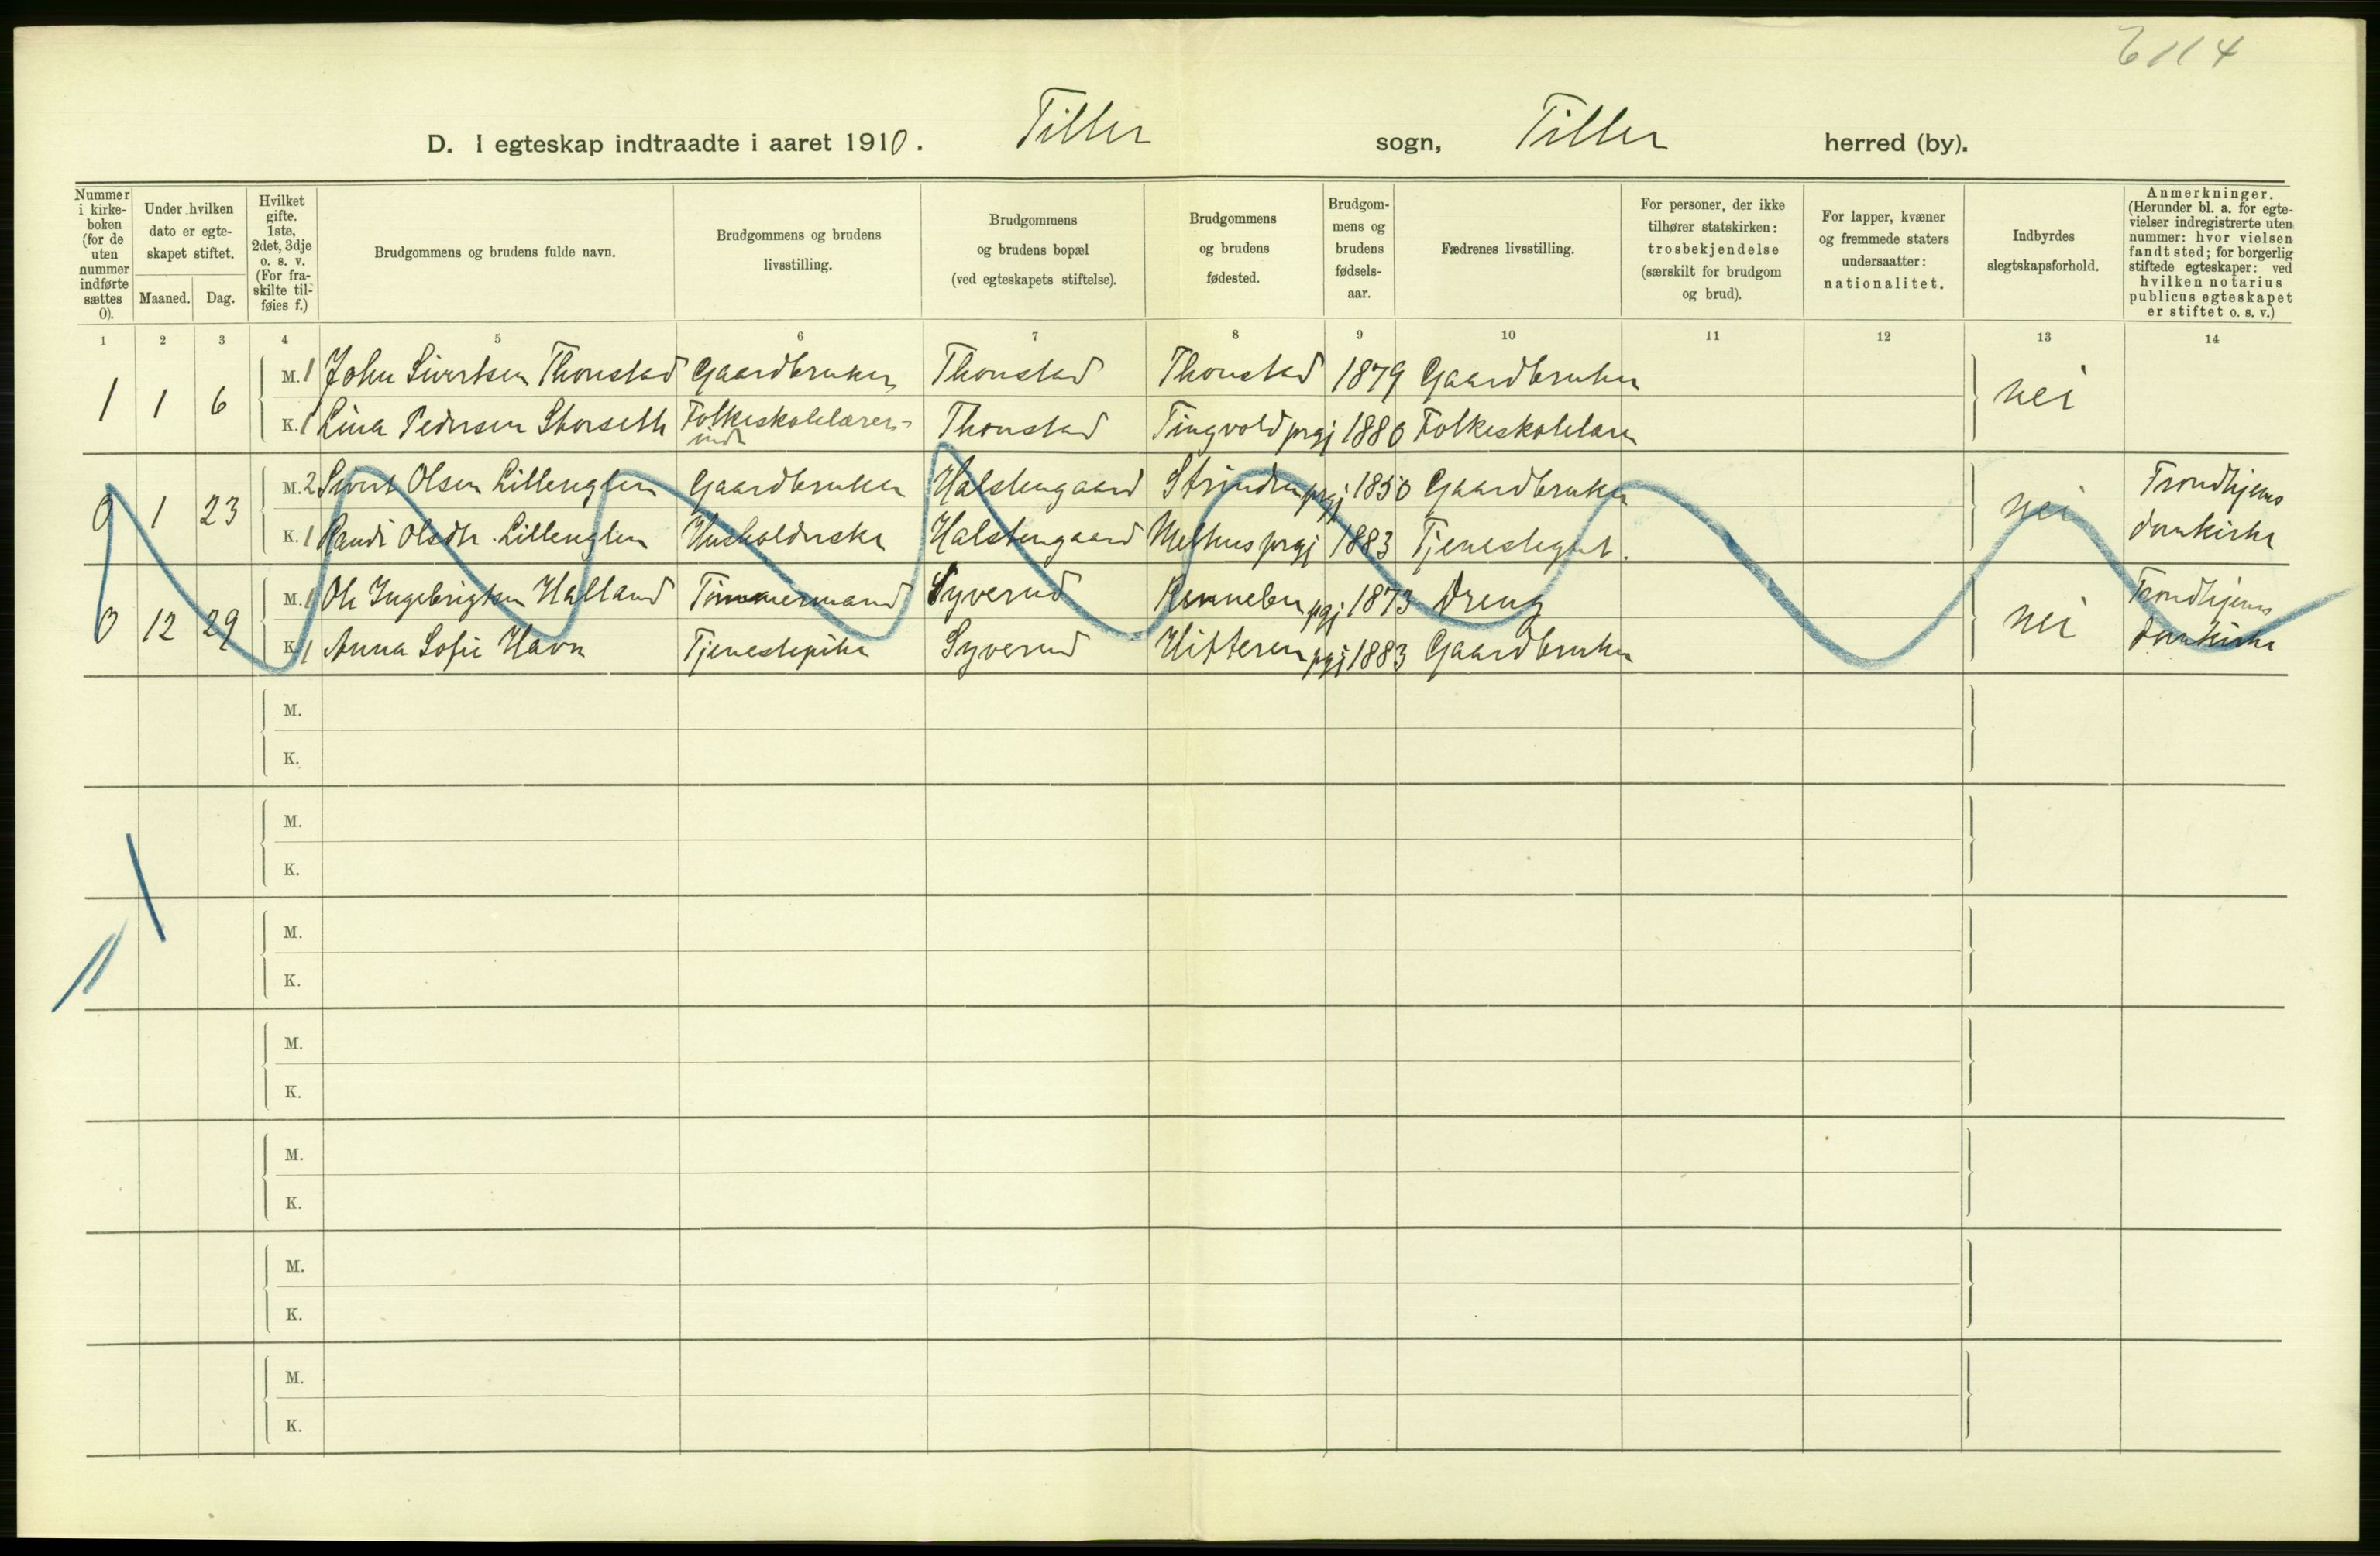 6114
D. I egteskap indtraadte i aaret 1910. Tiller sogn, Tiller herred (by).
Nummer i kirke- boken (for de uten nummer indførte sættes 0).
Under hvilken dato er egte- skapet stiftet.
Maaned. Dag.
Hvilket gifte. 1ste, 2det, 3dje o. s. v. (For fra- skilte til- føies f.)
Brudgommens og brudens fulde navn.
Brudgommens og brudens livsstilling.
Brudgommens og brudens bopæl (ved egteskapets stiftelse).
Brudgommens og brudens fødested.
Brudgom- mens og brudens fødsels- aar.
Fædrenes livsstilling.
For personer, der ikke tilhører statskirken: trosbekjendelse (særskilt for brudgom og brud).
For lapper, kvæner og fremmede staters undersaatter: nationalitet.
Indbyrdes slegtskapsforhold.
Anmerkninger. (Herunder bl. a. for egte- vielser indregistrerte uten nummer: hvor vielsen fandt sted; for borgerlig stiftede egteskaper: ved hvilken notarius publicus egteskapet er stiftet o. s. v.)
1 2 3 4 5 6 7 8 9 10 11 12 13 14
M. 1 John Sivertsen Thonstad Gaardbruker Thonstad Thonstad 1879 Gaardbruker
1 1 6 nei
K. 1 Lina Pedersen Storseth Folkeskolelærer- inde Thonstad Tingvold prgj 1880 Folkeskolelærer
M. 2 Sivert Olsen Lillenglen Gaardbruker Halstengaard Strinden prgj 1850 Gaardbruker Trondhjems
0 1 23 nei
K. 1 Randi Olsdtr. Lillenglen Husholderske Halstengaard Melhus prgj 1883 Tjenestegut. domkirke
M. 1 Ole Ingebrigtsen Halland Tømmermand Syverud Rennebu pgj 1873 Dreng Trondhjems
0 12 29 nei
K. 1 Anna Sofie Havn Tjenestepike Syverud Hitteren pgj 1883 Gaardbruker domkirke
M.
K.
M.
K.
M.
K.
M.
K.
M.
K.
M.
K.
M.
K.